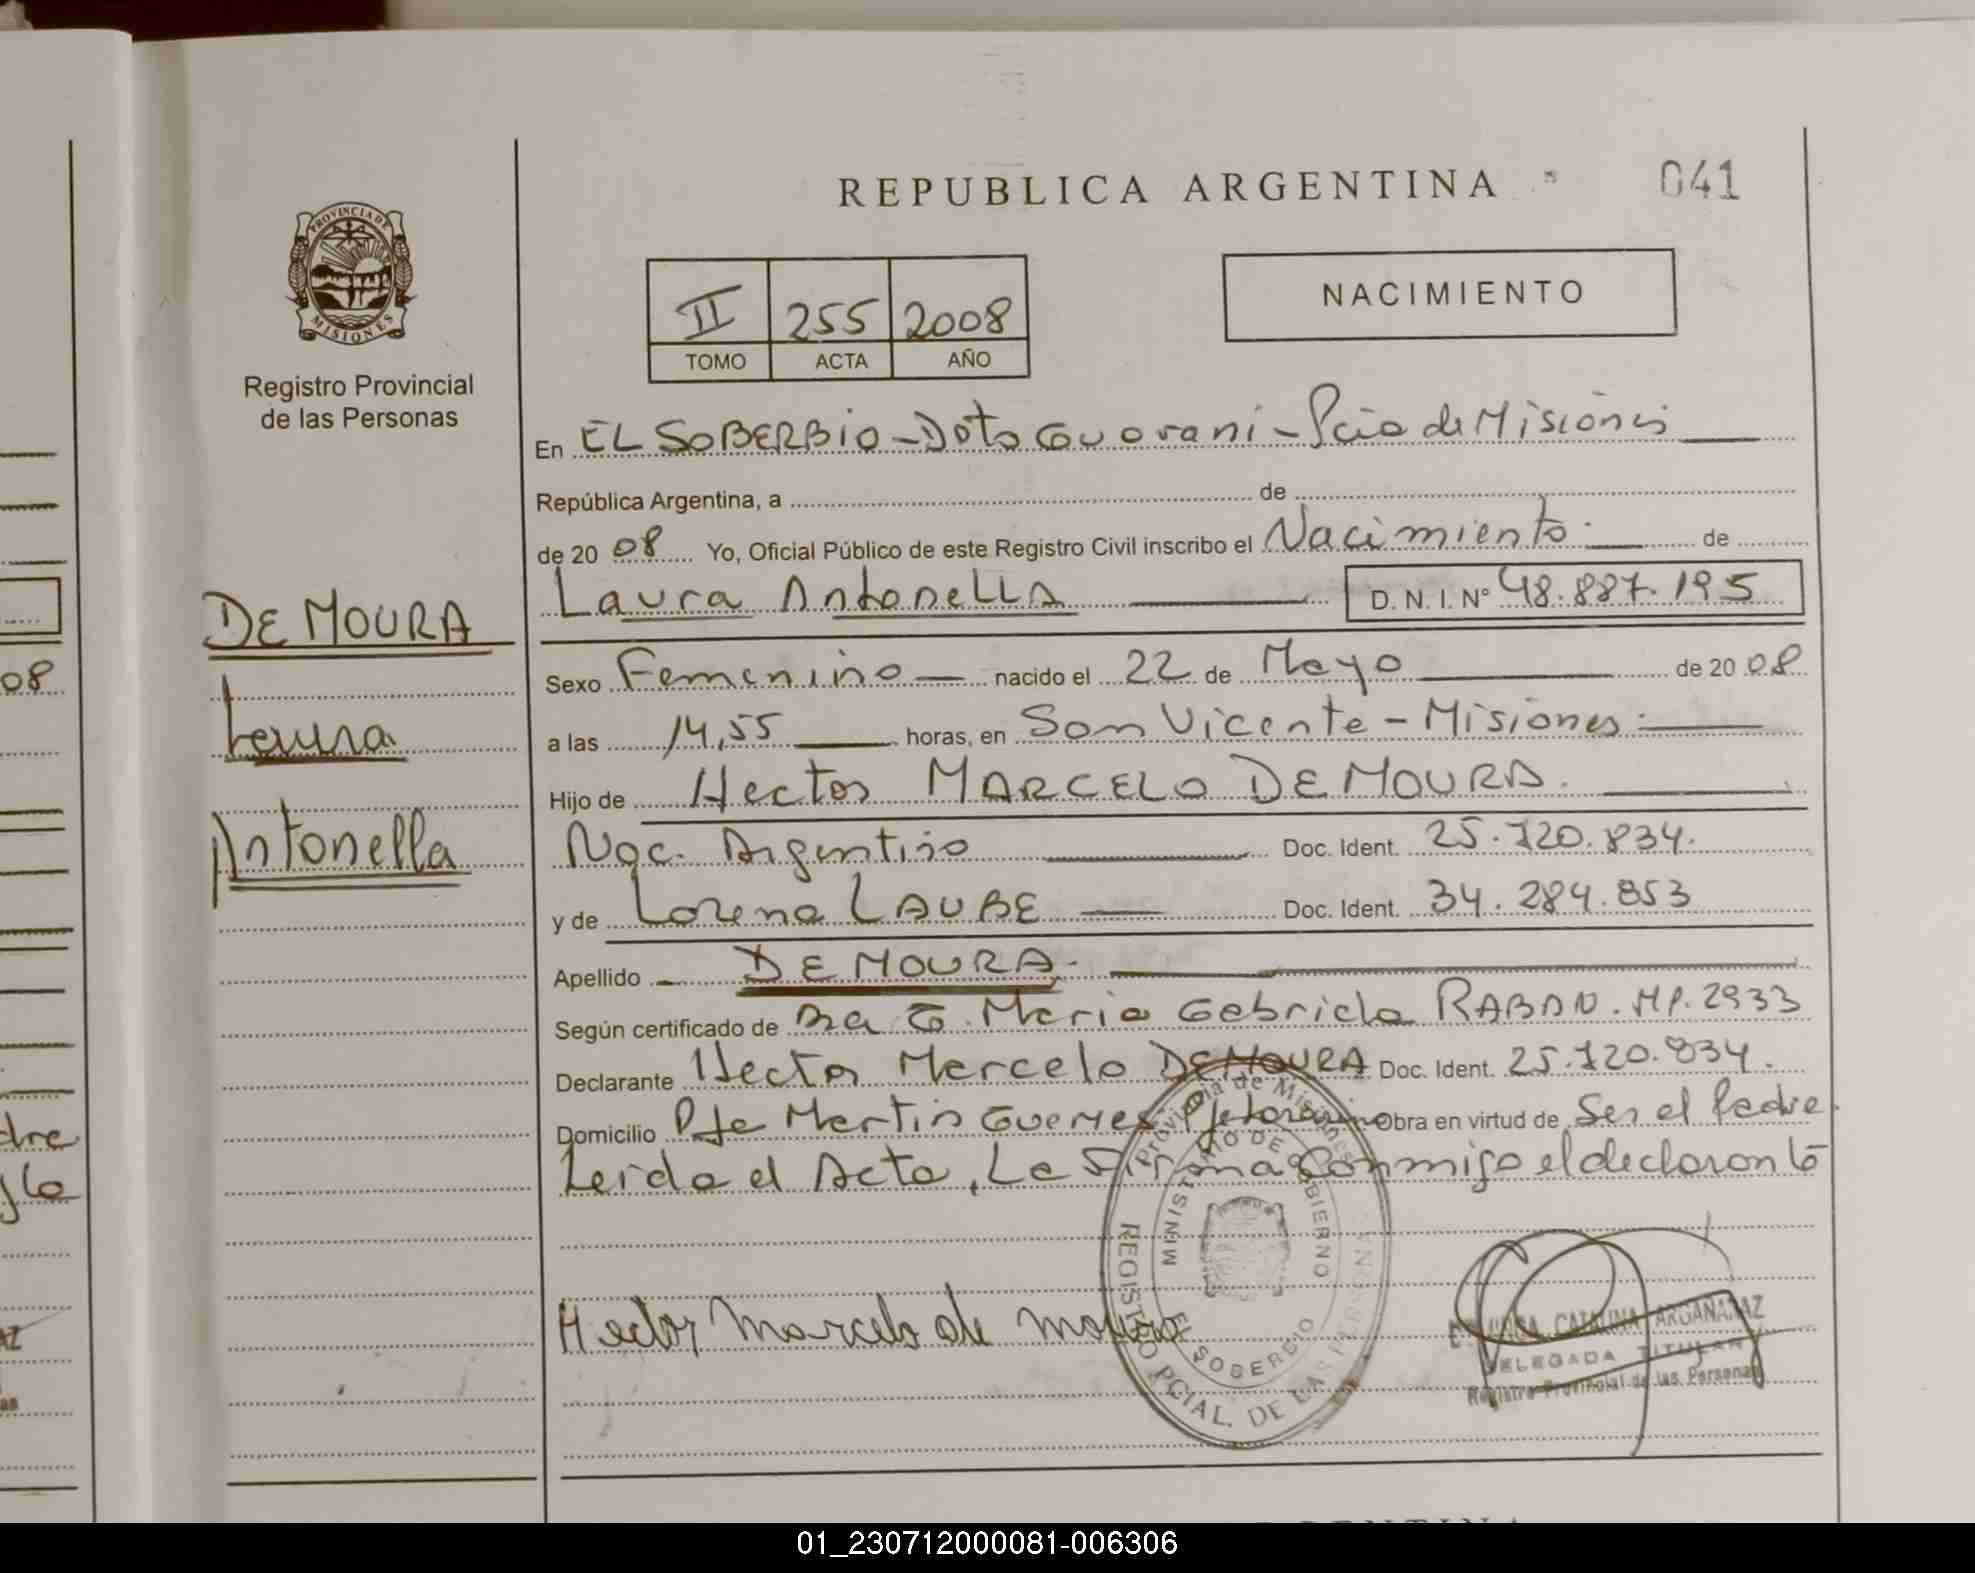 REPUBLICA ARGENTINA
041
PROVINCIA DE
MISIONES
Registro Provincial
de las Personas
II 255 2008
TOMO ACTA AÑO
NACIMIENTO
En EL SOBERBio - Dpto Guarani - Pcia de Misiones
República Argentina, a de
de 20 08 Yo, Oficial Público de este Registro Civil inscribo el Nacimiento. de
Laura Antonella D.N.I. Nº 48.887.195
DE MOURA
Laura
Antonella
Sexo Femenino nacido el 22 de Mayo de 20 08
a las 14,55 horas, en San Vicente - Misiones.
Hijo de Hector MARCELO DE MOURA.
Nac. Argentino Doc. Ident. 25.120.834.
y de Lorena LAUBE Doc. Ident. 34.284.853
Apellido DE MOURA.
Según certificado de Maria Gabriela RABAN. MP. 2933
Declarante Hector Marcelo DE MOURA Doc. Ident. 25.120.834.
Domicilio Pje Martin Guemes Obra en virtud de Ser el Padre.
Leida el Acta, La Firma Conmigo el declarante
Hector Marcelo de Moura
Provincia de Misiones
MINISTERIO DE GOBIERNO
REGISTRO PCIAL. DE LAS PERSONAS
EL SOBERBIO
CATALINA ARGAÑARAZ
DELEGADA TITULAR
Registro Provincial de las Personas
08
dre
01_230712000081-006306